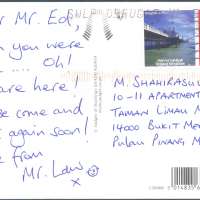 r Mr. Ed,
n you were
Oh!
are here!
se come and
t again soon!
e from
Mr. Law
M. SHAHIRASUL
10-11 APARTMENT
TAMAN LIMAU M
14000 BUKIT ME
PULAU PINANG M